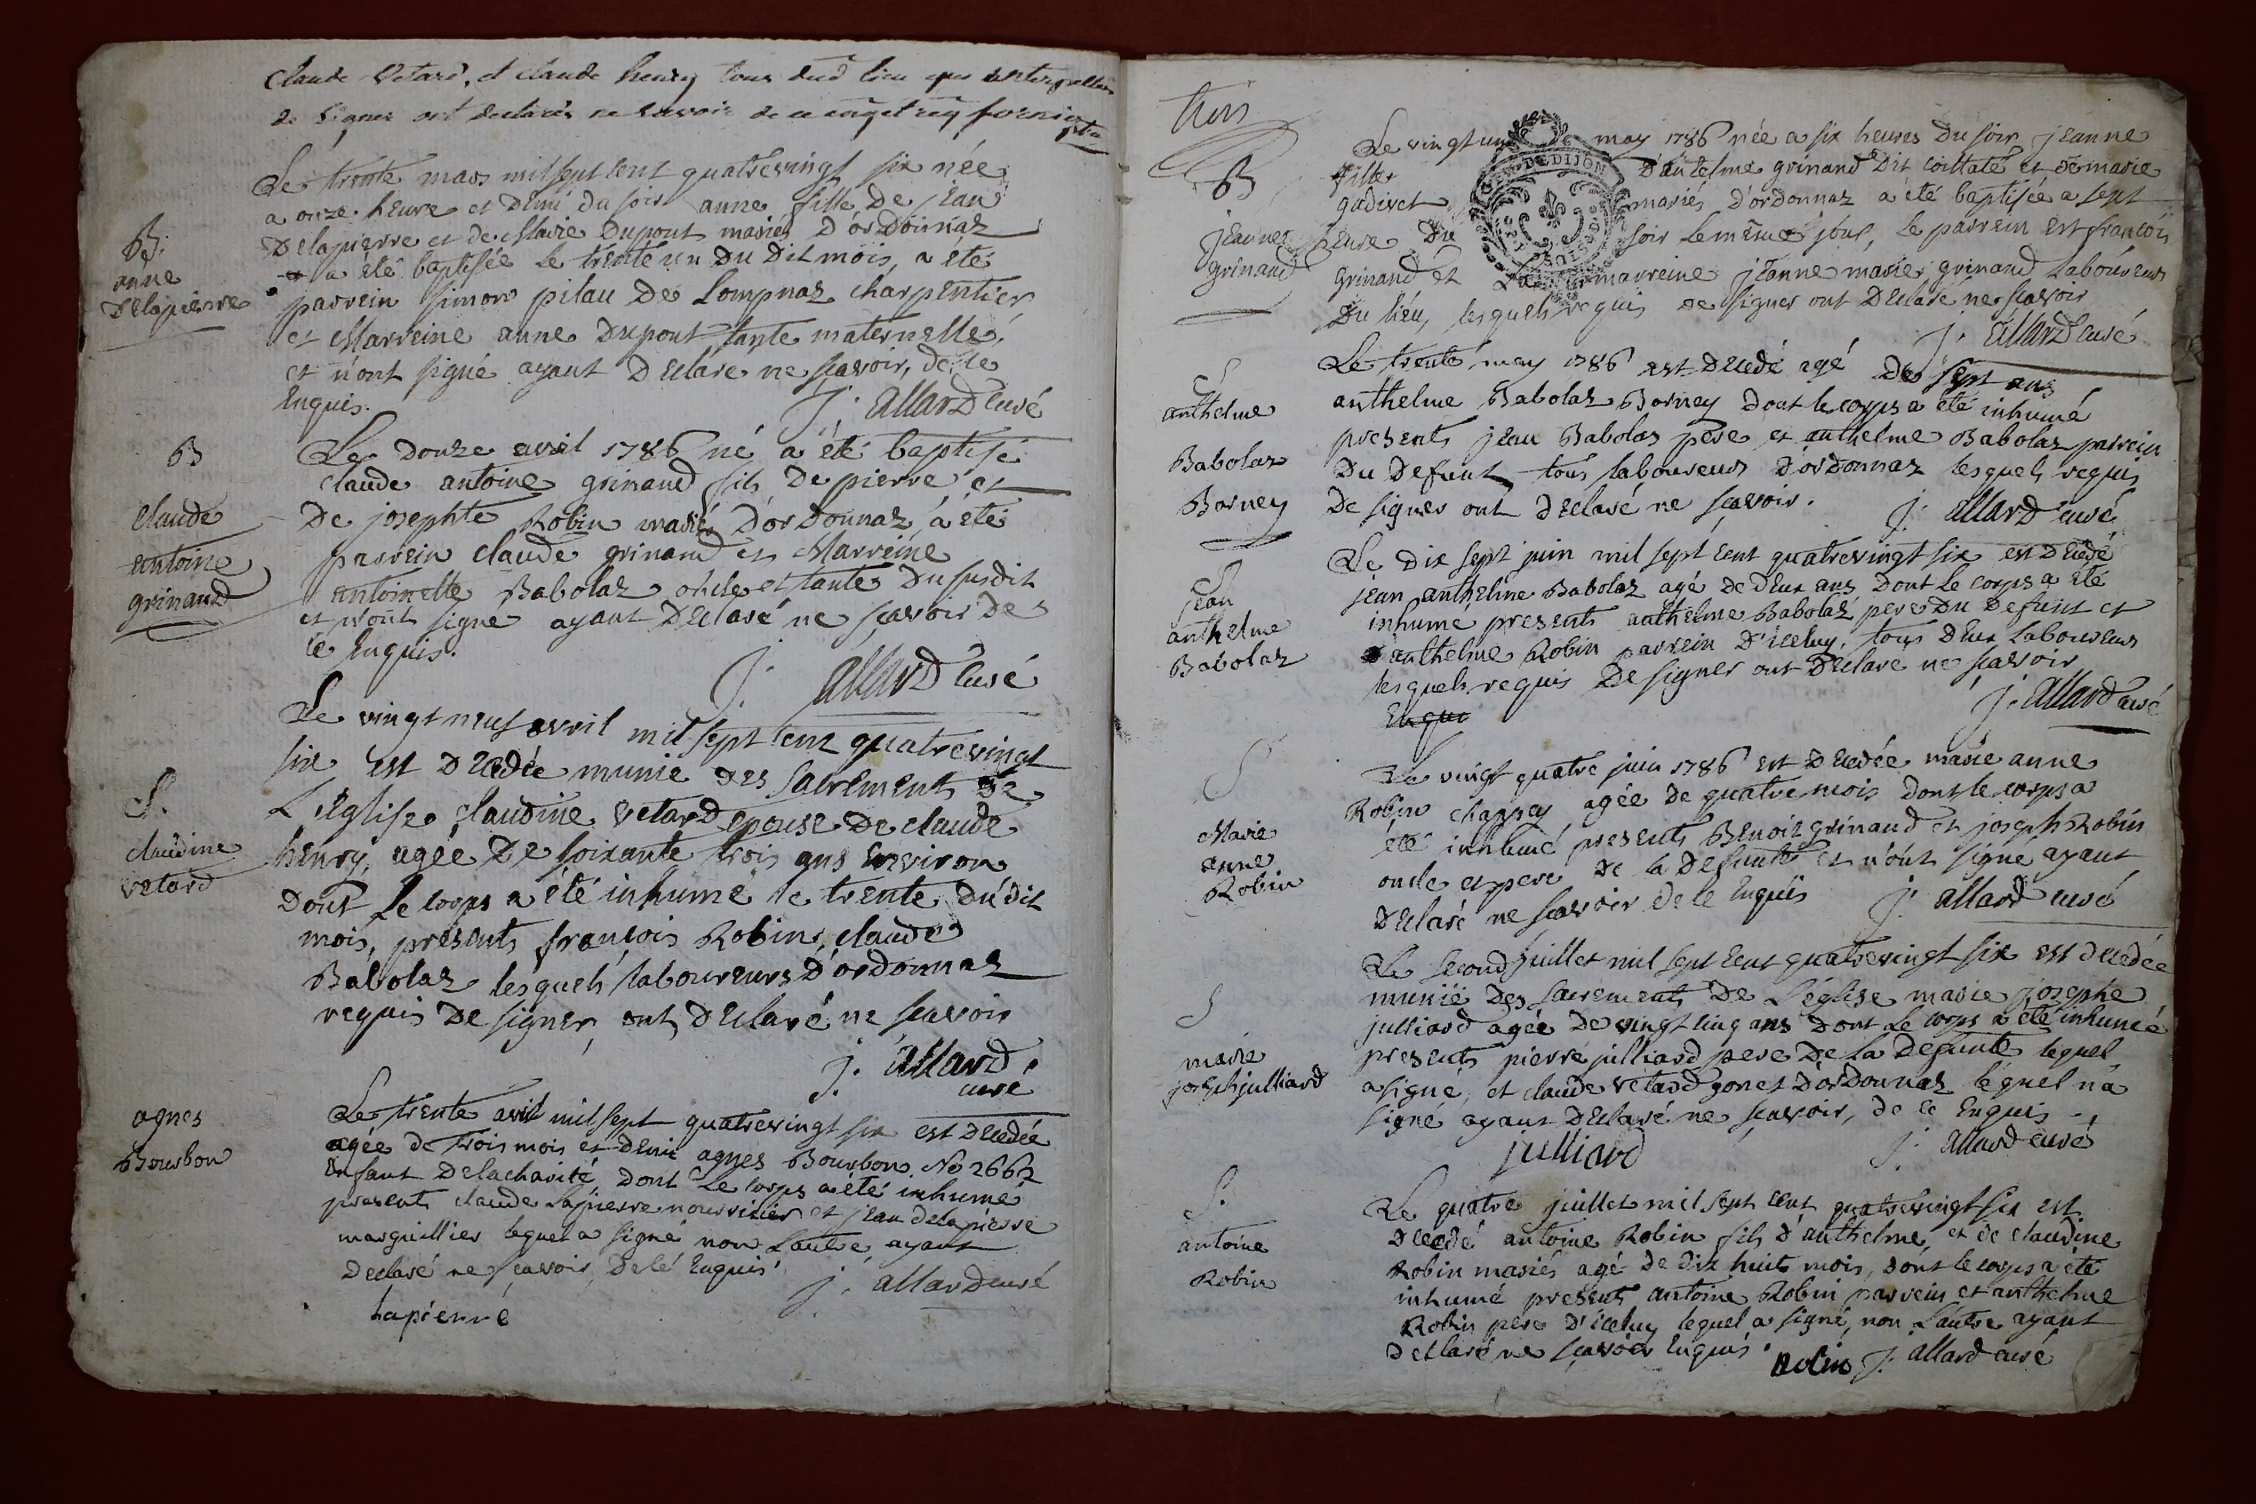 Claude Vetard, et claude henry tous dud lieu
de signer ont declarés ne savoir de ce
Le trente mars mil sept cent quatrevingt six née
a onze heure et Demi du soir anne fille De jean
Delapierre et de Claire Dupont mariés D'ordonnaz
a été baptisée Le trente un Du Dit mois, a été
parrein simon pitau De Lompnaz charpentier
et Marreine anne Dupont tante maternelle,
et n'ont signé ayant Declaré ne scavoir, de ce
Enquis.
J. allard curé
B.
anne
Delapierre
Le Douze avril 1786 né a été baptisé
claude antoine grinand fils De pierre et
De josephte Robin mariés D'ordonnaz a été
parrein claude grinand et Marreine
antoinette Babolaz oncle et tante Du susdit
et n'ont signé ayant Declaré ne scavoir De
ce Enquis.
J. allard curé
B
claude
antoine
grinand
Le vingt neuf avril mil sept cent quatrevingt
six est Decedée munie des sacrements De
L'eglise claudine Vetard epouse De claude
henry, agée De soixante trois ans environ
Dont Le corps a été inhumé le trente Du dit
mois, présents françois Robin, claude
Babolaz lesquels laboureurs D'ordonnaz
requis De signer, ont Declaré ne scavoir
J. allard
curé
S.
claudine
Vetard
Le trente avril mil sept quatrevingt six est Decedée
agée de trois mois et Demi agnes Bourbon No 2662
Enfant Delacharité, Dont Le corps a été inhumé
presents claude Lapierre nourricier et jean delapierre
marguillier lequel a signé non L'autre ayant
Declaré ne scavoir, De ce Enquis
J. allard curé
Lapierre
agnes
Bourbon
trois
Le vingt un may 1786 née a six heures Du soir jeanne
fille D'antelme grinand Dit coillate et De marie
godivet mariés D'ordonnaz a été baptisée a sept
heure Du soir Le même jour, Le parrein est françois
grinand et La marreine jeanne marie grinand Laboureurs
Du lieu, lesquels requis de signer ont Declaré ne scavoir
J. allard curé
DE DIJON
B
jeanne
grinand
Le trente may 1786 est Decedé agé De sept ans
anthelme Babolaz Borney dont le corps a été inhumé
presents jean Babolaz père et anthelme Babolaz parrein
Du Defunt tous laboureurs D'ordonnaz lesquels requis
De signer ont Declaré ne scavoir.
J. allard curé
S
anthelme
Babolaz
Borney
Le Dix sept juin mil sept cent quatrevingt six est Decedé
jean anthelme Babolaz agé de deux ans Dont Le corps a été
inhumé presents anthelme Babolaz pere Du Defunt et
anthelme Robin parrein D'iceluy, tous Deux Laboureurs
lesquels requis De signer ont Declaré ne scavoir
Enqui
J. allard curé
S
jean
anthelme
Babolaz
Le vingt quatre juin 1786 est Decedée marie anne
Robin chagney agée De quatre mois dont le corps a
été inhumé presents Benoit grinand et joseph Robin
oncle et pere De la Defunte et n'ont signé ayant
Declaré ne scavoir de ce Enquis
J. allard curé
S
Marie
anne
Robin
Le second juillet mil sept cent quatrevingt six est decedée
munie Des sacrements De L'église marie josephe
julliard agée De vingt cinq ans Dont Le corps a été inhumé
presents pierre julliard pere De La Defunte lequel
a signé, et claude vetard gonet D'ordonnaz léquel n'a
signé ayant Declaré ne scavoir, de ce Enquis
julliard
J. allard curé
S
marie
joseph julliard
Le quatre juillet mil sept cent quatrevingt six est
Decedé antoine Robin fils d'anthelme et de claudine
Robin mariés agé de dix huit mois, dont le corps a été
inhumé presents antoine Robin parrein et anthelme
Robin pere D'iceluy lequel a signé, non L'autre ayant
declaré ne scavoir Enquis
Robin J. allard curé
S.
antoine
Robin